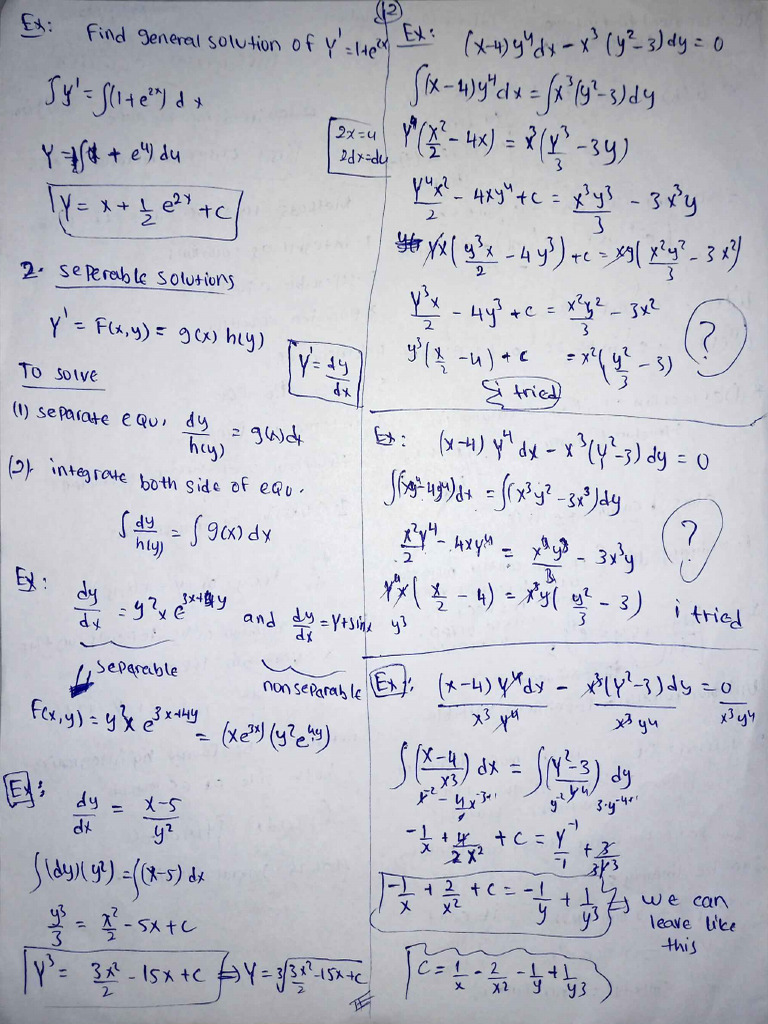 12
Ex: Find general solution of Y' = 1+e^{2x}
∫y' = ∫(1+e^{2x}) dx
2x=u
2dx=du
Y = ∫( + e^u) du
Y = x + 1/2 e^{2x} + c
2. Seperable solutions
Y' = F(x,y) = g(x) h(y)
Y' = dy/dx
To solve
(1) separate equ. dy/h(y) = g(x)dx
(2). integrate both side of equ.
∫ dy/h(y) = ∫ g(x) dx
Ex: dy/dx = y²x e^{3x+4y} and dy/dx = y+sinx
separable
nonseparable
F(x,y) = y²x e^{3x+4y} = (xe^{3x}) (y²e^{4y})
Ex: dy/dx = x-5/y²
∫(dy)(y²) = ∫(x-5) dx
y³/3 = x²/2 - 5x + c
Y³ = 3x²/2 - 15x + c ⇒ Y = ∛(3x²/2 - 15x + c)
Ex: (x-4) y⁴ dx - x³ (y²-3) dy = 0
∫(x-4)y⁴dx = ∫x³(y²-3)dy
Y⁴(x²/2 - 4x) = x³(y³/3 - 3y)
Y⁴x²/2 - 4xy⁴ + c = x³y³/3 - 3x³y
yx(y³x/2 - 4y³) + c = xy(x²y²/3 - 3x²)
Y³x/2 - 4y³ + c = x²y²/3 - 3x²
y³(x/2 - 4) + c = x²(y²/3 - 3)
?
i tried
Ex: (x-4) y⁴ dx - x³(y²-3) dy = 0
∫(xy⁴-4y⁴)dx = ∫(x³y² - 3x³)dy
x²y⁴/2 - 4xy⁴ = x³y³/3 - 3x³y
y⁴x(x/2 - 4) = x³y(y²/3 - 3)
y³
?
i tried
Ex: (x-4) y⁴dx/x³y⁴ - x³(y²-3) dy/x³y⁴ = 0/x³y⁴
∫(x-4/x³) dx = ∫(y²-3/y⁴) dy
x^{-2} - 4x^{-3+1} y^{-2} 3·y^{-4+1}
-1/x + 4/2x² + c = y^{-1}/-1 + 3/3y³
-1/x + 2/x² + c = -1/y + 1/y³ ⇒ we can
leave like
this
c = 1/x - 2/x² - 1/y + 1/y³